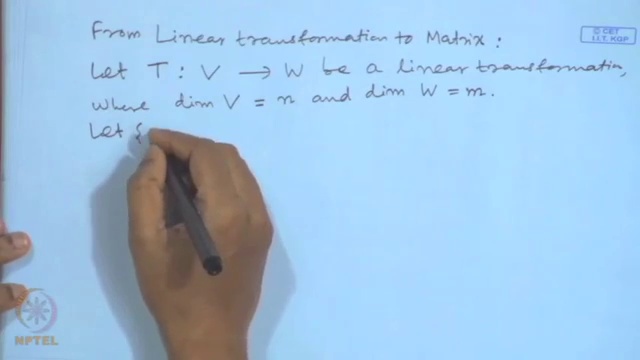 © CET
I.I.T. KGP
From Linear transformation to Matrix :
Let T : V → W be a linear transformation,
where dim V = n and dim W = m.
Let {
NPTEL